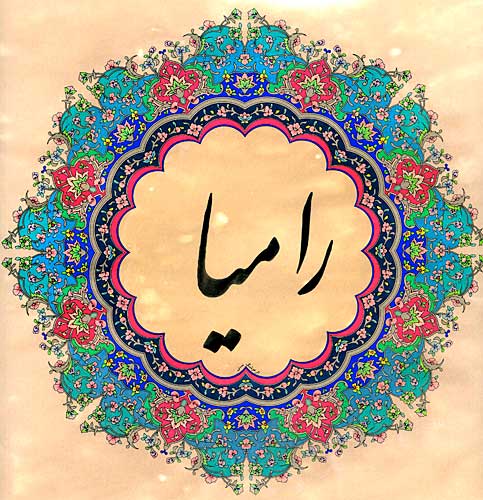 رامیا